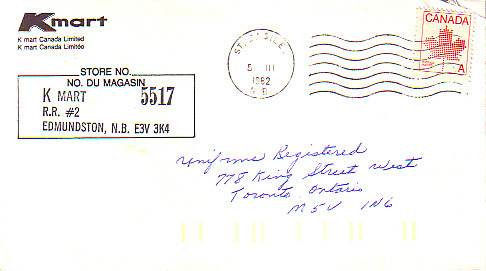 Kmart
K mart Canada Limited
K mart Canada Limitée
STORE NO.
NO. DU MAGASIN
K MART 5517
R.R. #2
EDMUNDSTON, N.B. E3V 3K4
ST. BASILE
5 III
1982
N.B.
CANADA
A
Uniforms Registered
778 King Street West
Toronto Ontario
M5V 1N6